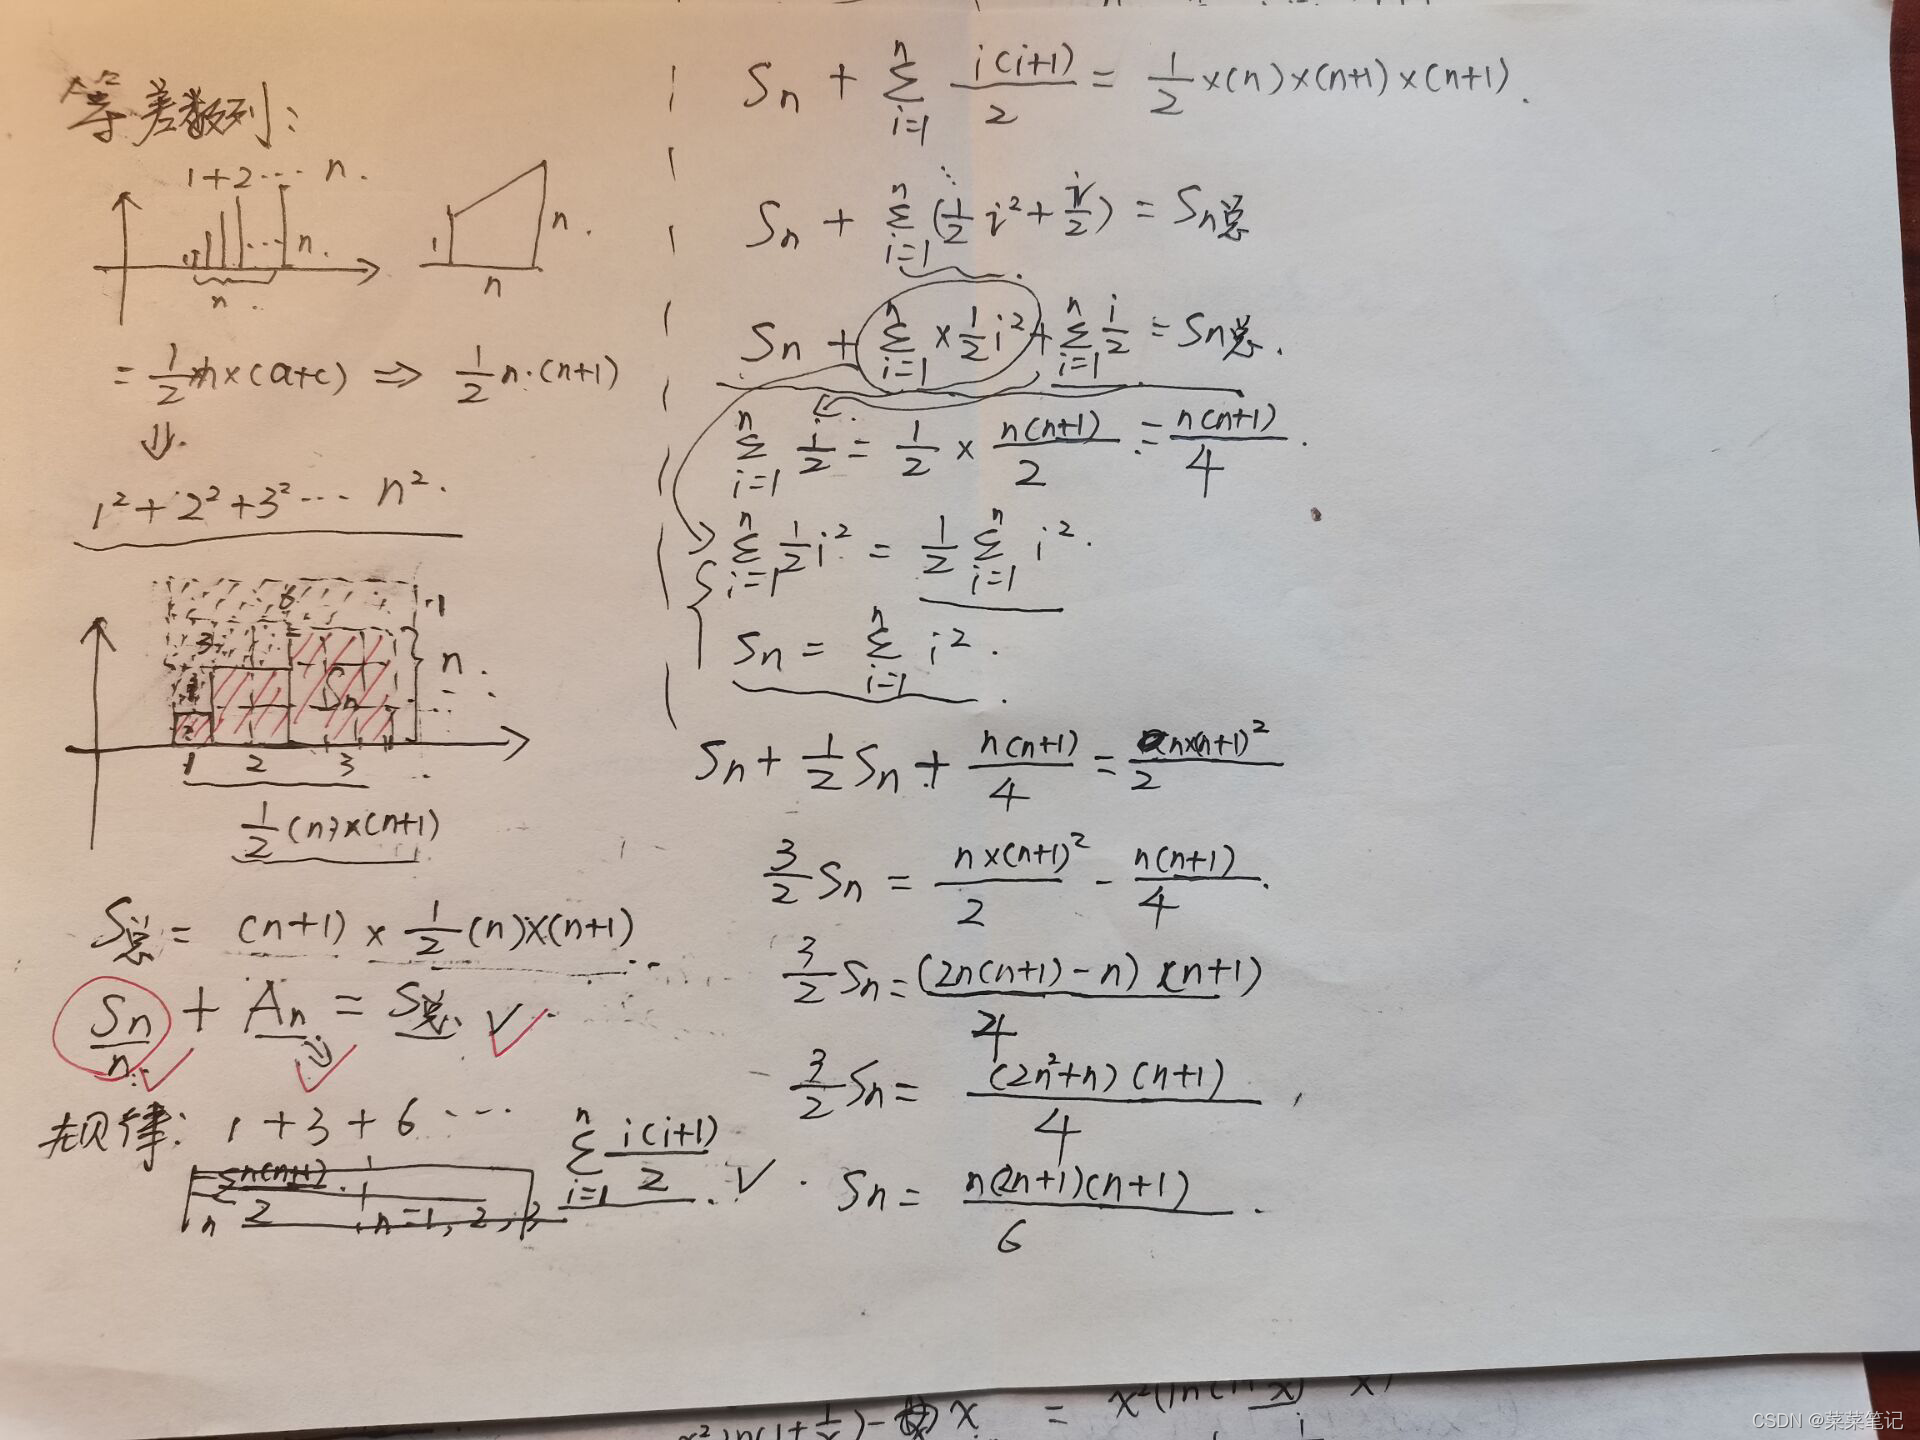 等差数列:
1+2… n.
1 n.
n.
n
n.
= 1/2 n×(a+c) ⇒ 1/2 n·(n+1)
⇓.
1²+2²+3²… n².
6 1
3
n.
Sn
1 2 3
1/2 (n)×(n+1)
S总 = (n+1) × 1/2 (n)×(n+1)
Sn + An = S总 ✓
n
规律: 1+3+6 …
∑_{i=1}^{n} i(i+1)/2 . ✓
∑ n(n+1)/2
n n=1, 2, 3
Sn + ∑_{i=1}^{n} i(i+1)/2 = 1/2 ×(n)×(n+1)×(n+1).
Sn + ∑_{i=1}^{n} (1/2 i² + i/2) = Sn总
Sn + ∑_{i=1}^{n} × 1/2 i² + ∑_{i=1}^{n} i/2 = Sn总.
∑_{i=1}^{n} i/2 = 1/2 × n(n+1)/2 = n(n+1)/4 .
∑_{i=1}^{n} 1/2 i² = 1/2 ∑_{i=1}^{n} i².
Sn = ∑_{i=1}^{n} i² .
Sn + 1/2 Sn + n(n+1)/4 = n×(n+1)²/2
3/2 Sn = n×(n+1)²/2 - n(n+1)/4 .
3/2 Sn = (2n(n+1)-n)×(n+1)/4
3/2 Sn = (2n²+n)(n+1)/4
Sn = n(2n+1)(n+1)/6 .
CSDN @菜菜笔记